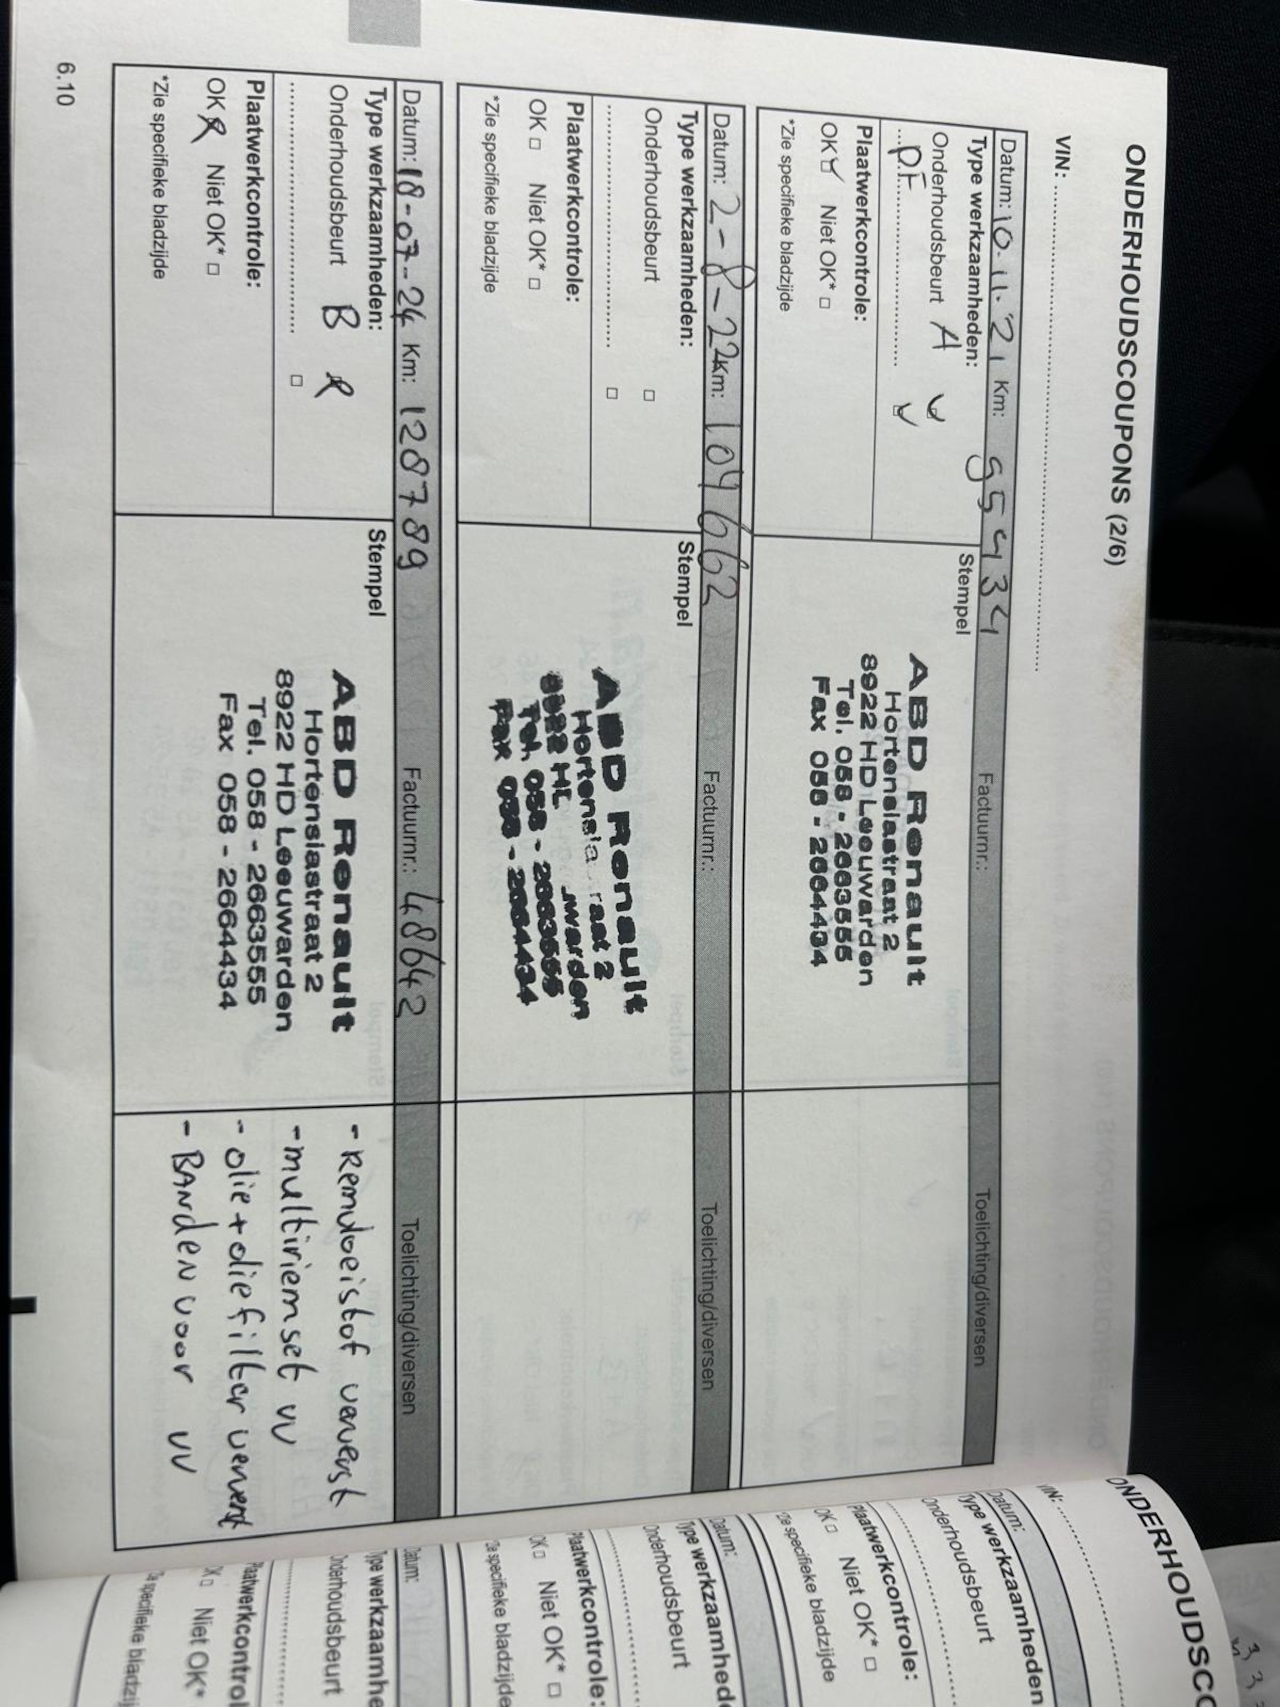 ONDERHOUDSCOUPONS (2/6)
VIN:
Datum: 10.11.21 Km: 95434 Factuurnr.: Toelichting/diversen
Type werkzaamheden:
Onderhoudsbeurt A
P.F.
Plaatwerkcontrole:
OK Niet OK*
*Zie specifieke bladzijde
Stempel
ABD Renault
Hortensiastraat 2
8922 HD Leeuwarden
Tel. 058 - 2663555
Fax 058 - 2664434
Datum: 2-8-22 Km: 104662 Factuurnr.: Toelichting/diversen
Type werkzaamheden:
Onderhoudsbeurt □
□
Plaatwerkcontrole:
OK □ Niet OK* □
*Zie specifieke bladzijde
Stempel
ABD Renault
Hortensia raat 2
8922 HD warden
Tel. 058 - 2663555
Fax 058 - 2664434
Datum: 18-07-24 Km: 128789 Factuurnr.: 48642 Toelichting/diversen
Type werkzaamheden:
Onderhoudsbeurt B
□
Plaatwerkcontrole:
OK Niet OK* □
*Zie specifieke bladzijde
Stempel
ABD Renault
Hortensiastraat 2
8922 HD Leeuwarden
Tel. 058 - 2663555
Fax 058 - 2664434
- Remvloeistof ververst
- multiriemset vv
- olie + oliefilter ververst
- BANden voor vv
6.10
ONDERHOUDSC
VIN:
Datum:
Type werkzaamheden
Onderhoudsbeurt
Plaatwerkcontrole:
OK □ Niet OK* □
*Zie specifieke bladzijde
Datum:
Type werkzaamhed
Onderhoudsbeurt
Plaatwerkcontrole:
OK □ Niet OK* □
*Zie specifieke bladzijde
Datum:
Type werkzaamhe
Onderhoudsbeurt
Plaatwerkcontrol
OK □ Niet OK*
*Zie specifieke bladzij